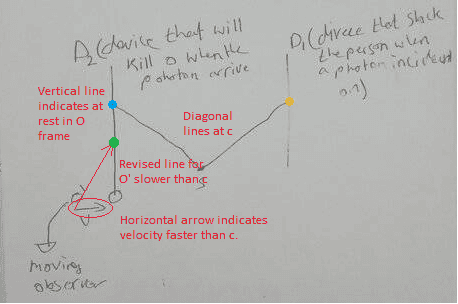 D₂ (device that will
kill O when the
photon arrive
D₁ (divece that shock
the person when
a photon incident
on it)
Vertical line
indicates at
rest in O
frame
Diagonal
lines at c
Revised line for
O' slower than c
Horizontal arrow indicates
velocity faster than c.
O'
O
S
V
moving
observer